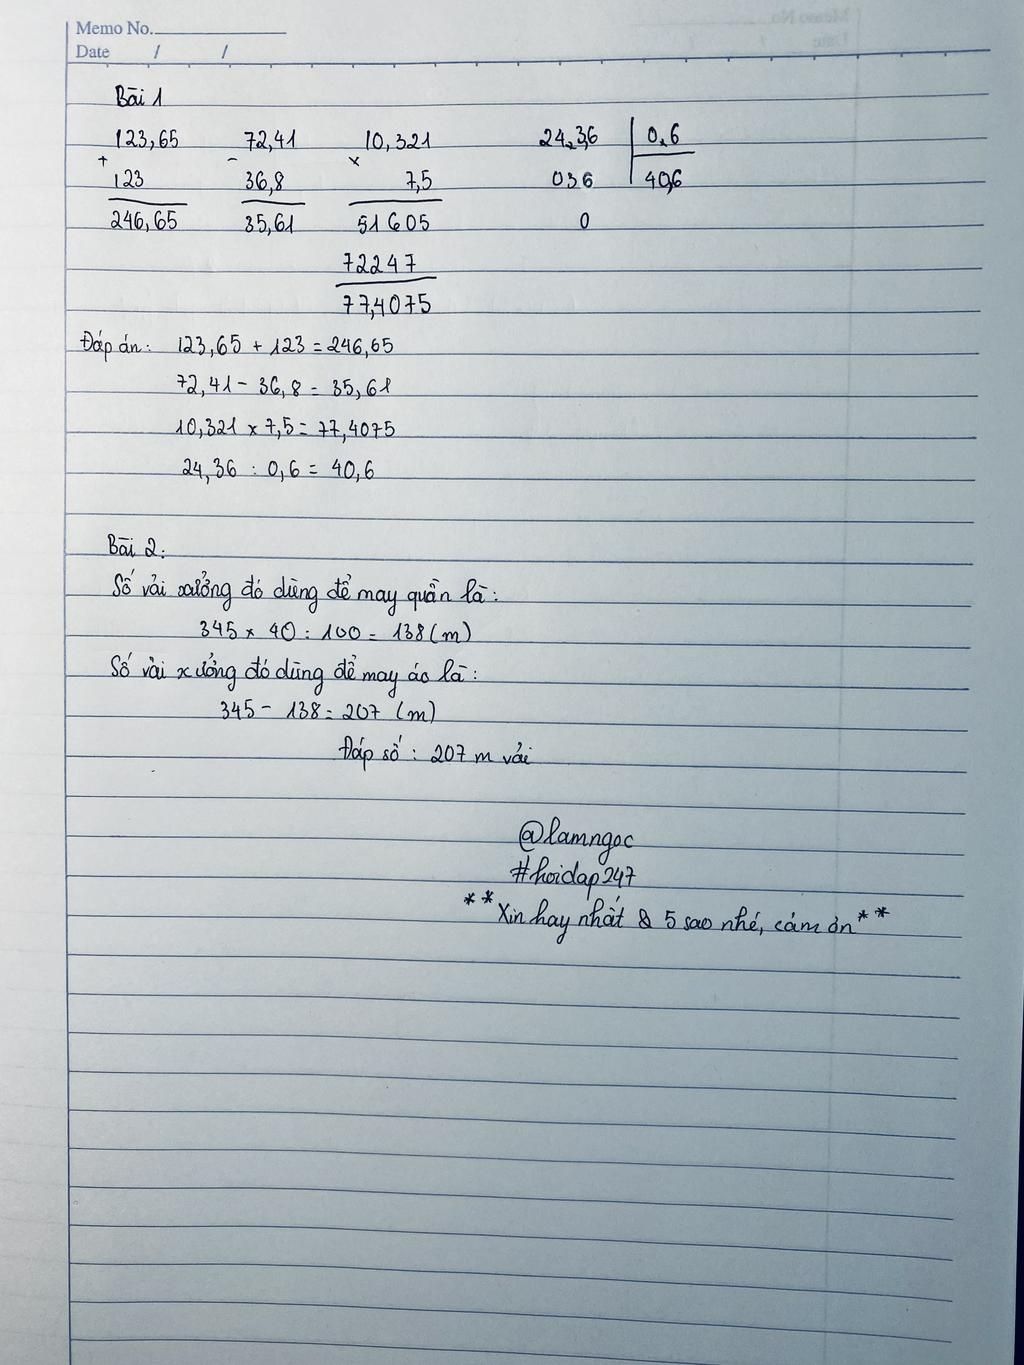 Memo No.
Date / /
Bài 1
123,65 72,41 10,321 24,36 0,6
+ - x
123 36,8 7,5 036 40,6
246,65 35,61 51605 0
72247
77,4075
Đáp án: 123,65 + 123 = 246,65
72,41 - 36,8 = 35,61
10,321 x 7,5 = 77,4075
24,36 : 0,6 = 40,6
Bài 2:
Số vải xưởng đó dùng để may quần là:
345 x 40 : 100 = 138 (m)
Số vải xưởng đó dùng để may áo là:
345 - 138 = 207 (m)
Đáp số: 207 m vải
@lamngoc
#hoidap247
**Xin hay nhất & 5 sao nhé, cảm ơn**